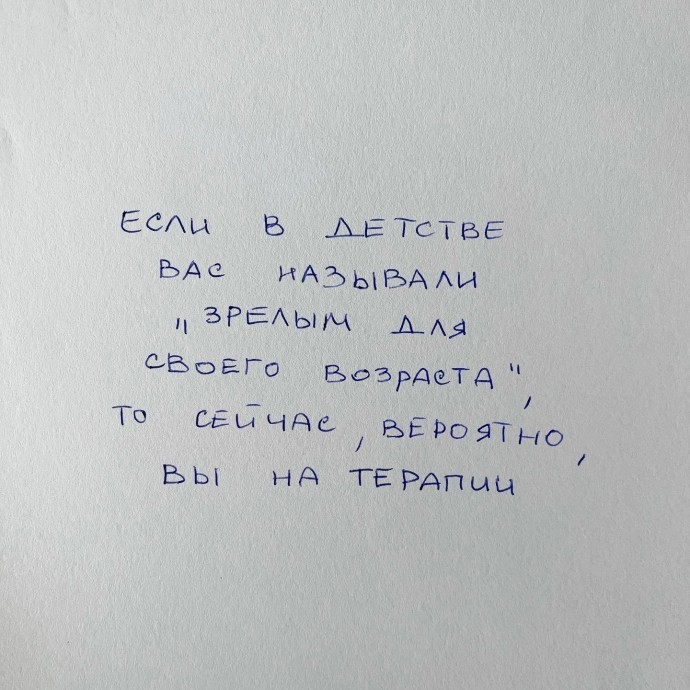 ЕСЛИ В ДЕТСТВЕ
ВАС НАЗЫВАЛИ
„ЗРЕЛЫМ ДЛЯ
СВОЕГО ВОЗРАСТА",
ТО СЕЙЧАС, ВЕРОЯТНО,
ВЫ НА ТЕРАПИИ